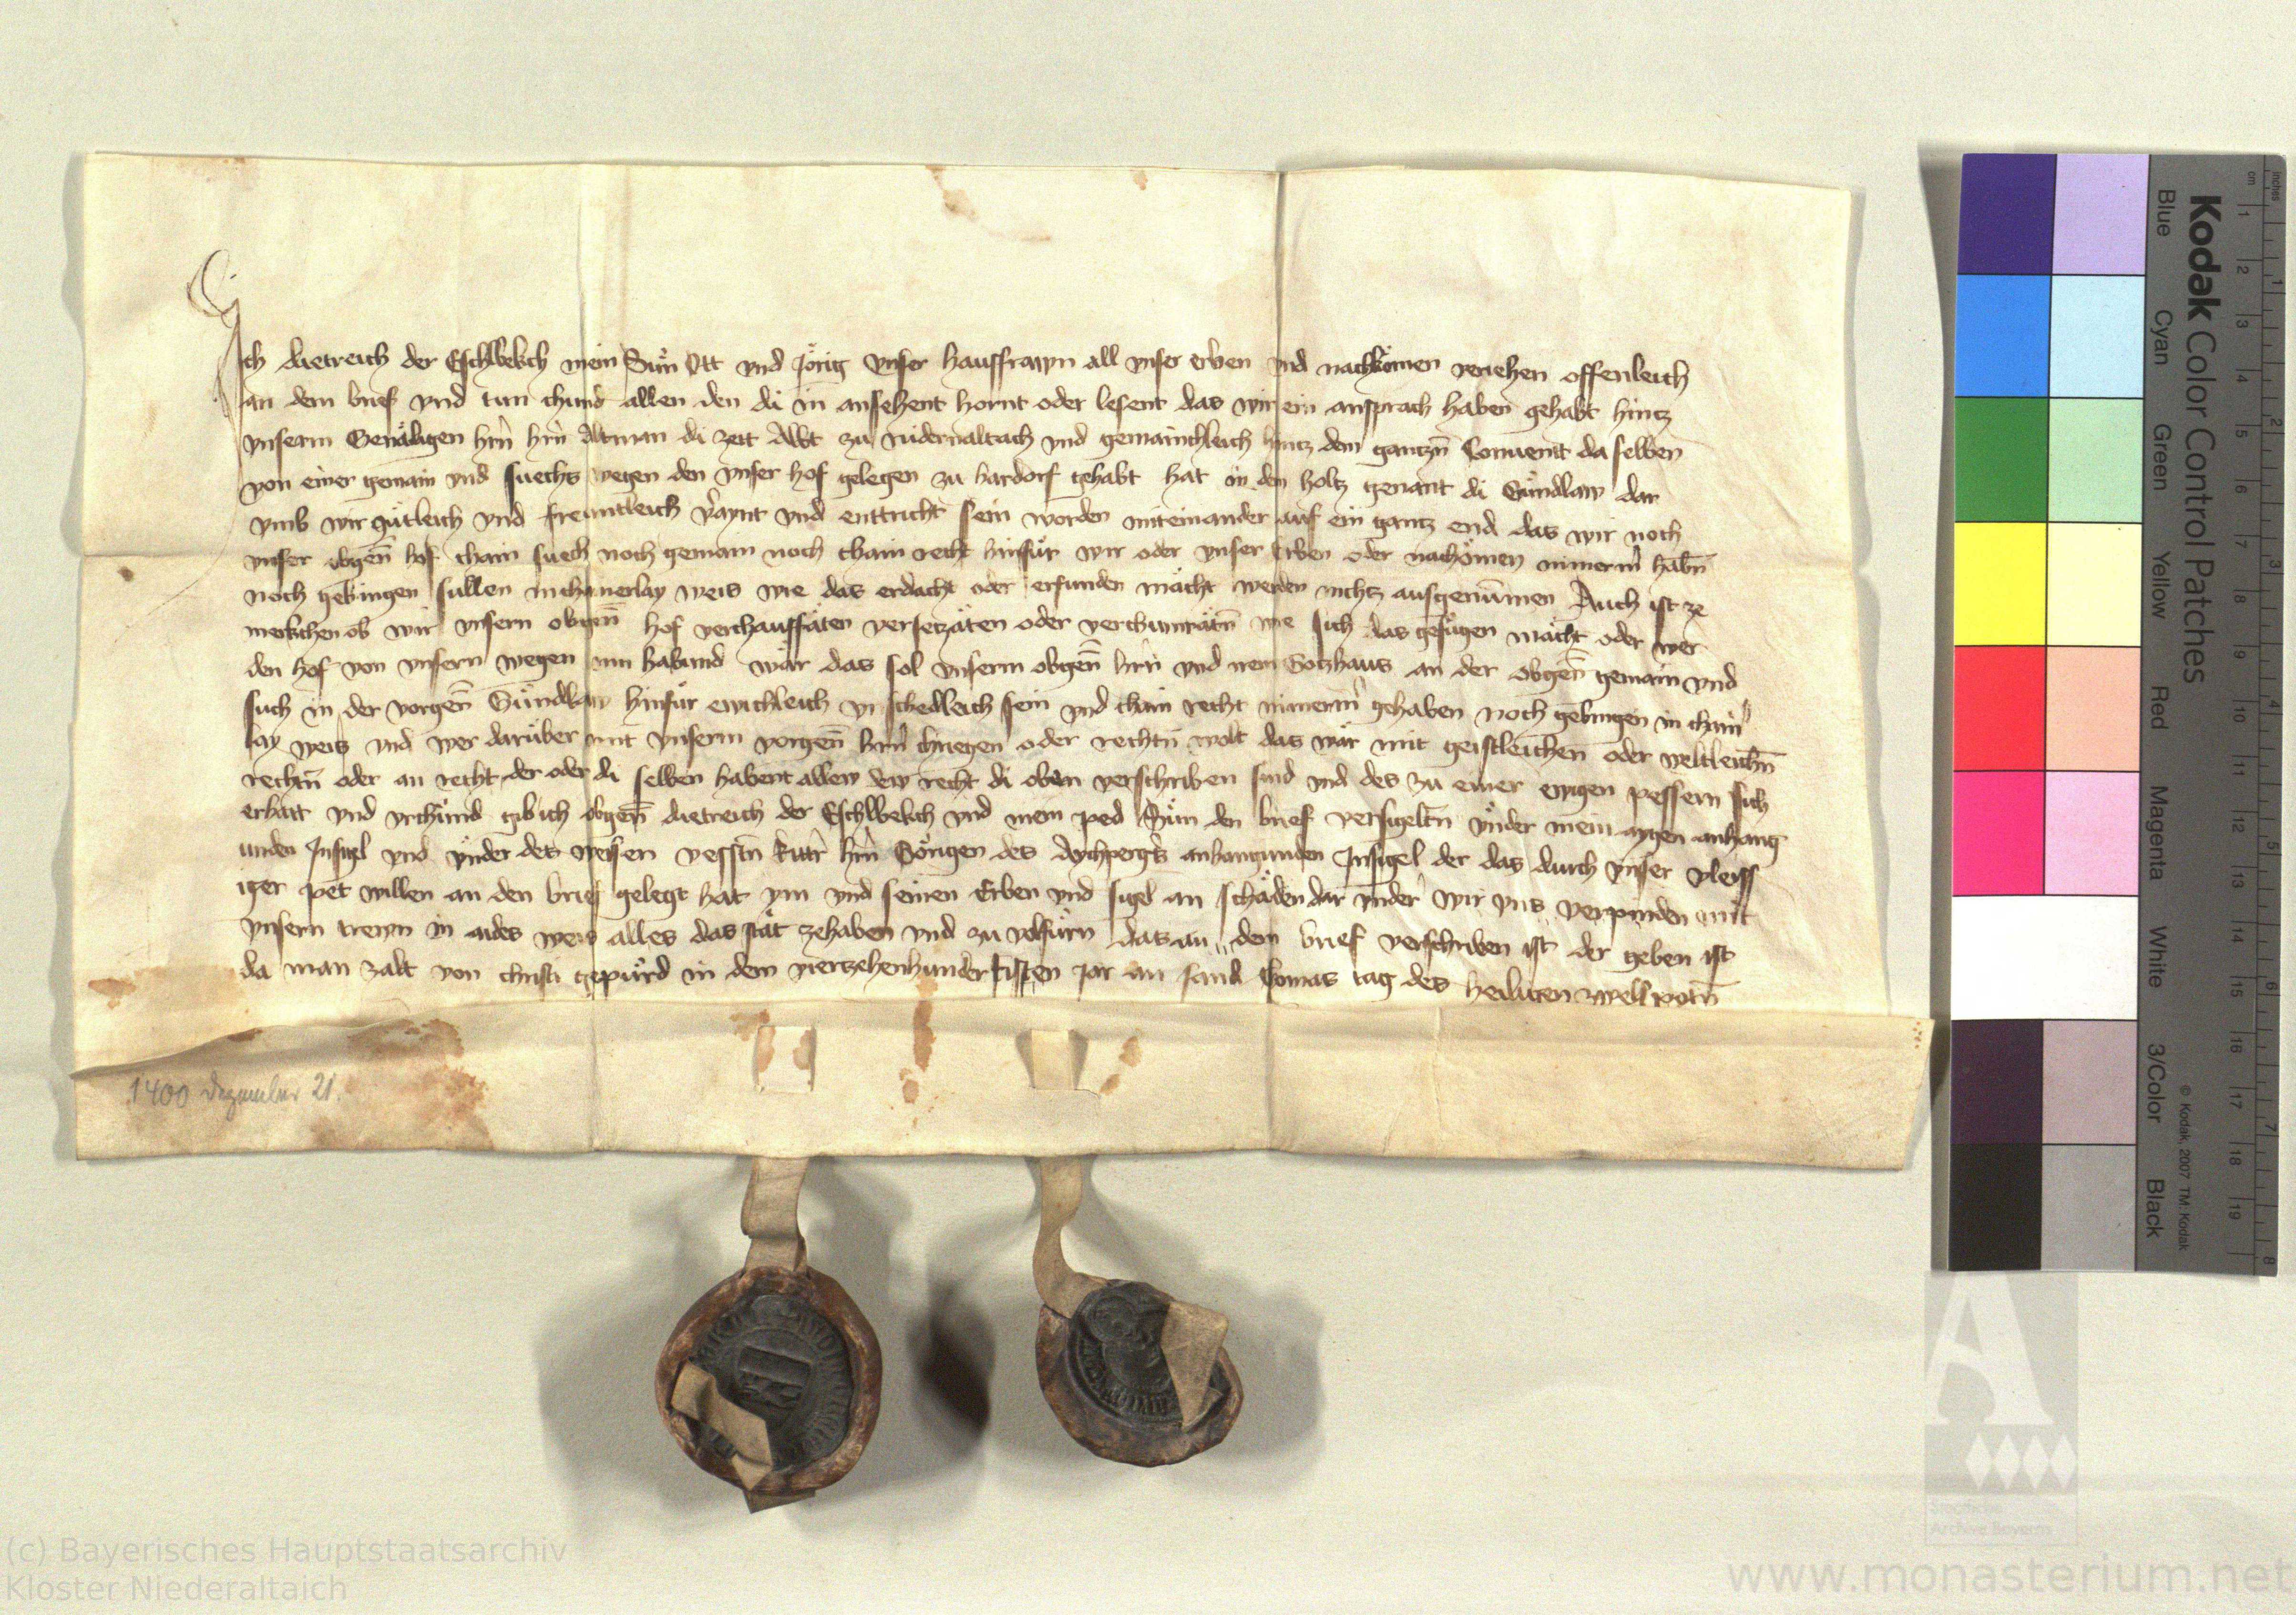 Ich dietreich der Eschlbekch mein Sün Ott vnd Jörig vnser hausfrawn all vnser erben vnd nachkömen veriehen offenleich
an dem brief vnd tun chund allen den di in ansehent hornt oder lesent das wir ein ansprach haben gehabt hintz
vnserm Genädigen hrñ hrñ Altman di zeit Abbt zu nidernaltach vnd gemainchleich hintz dem gantzñ Conuent da selben
von einer gemain vnd suechs wegen den vnser hof gelegen zu hardorf gehabt hat in den holtz genant di Gündlaw dar
vmb wir gütleich vnd freuntleich v̉aynt vnd enttricht sein worden miteinander auf ein gantz end das wir noch
vnser obgen̄ hof chain such noch gemain noch chain recht hinfür wir oder vnser Erben oder nachömen nimerm̉ habñ
noch gebingen sullen in chainerlay weis wie das erdacht oder erfunden mächt werden nichtz ausgenūmen Auch ist ze
merkchen ob wir vnsern obgen̄ hof verchauffäten versetzäten oder verchumrätñ wie sich das gefügen mächt oder wer
den hof von vnsern wegen inn habund wär das sol vnserm obgen̄ hrñ vnd irem Gotzhaus an der obgen̄ gemain vnd
such in der vorgen̄ Gündlaw hinfür ewichleich vnschedleich sein vnd chain recht nimerm̉ gehaben noch gebingen in chain̉
lay weis vnd wer darüber mit vnserm vorgen̄ hrñ chriegen oder rechtñ wolt das wär mit geistleichen oder weltleichñ
rechtñ oder an recht der oder di selben habent allew dew recht di oben verschriben sind vnd des zu einer ewigen pessern sich
erhait vnd vrchünd gib ich obgen̄ dietreich der Eschlbekch vnd mein ped Sün den brief versigeltñ vnder mein aygen anhang
unden Insigel vnd vnder des weisen vesstñ Rittr̉ hrñ Görigen des Aychpergs anhangunden Insigel der das durch vnser vleiss
iger pet willen an den brief gelegt hat ym vnd seinen Erben vnd sigel an schäden dar vnder wir vns verpinden mit
vnsern trewn in aides weis alles das stät zehaben vnd zu volfürn das an dem brief verschriben ist der geben ist
da man zalt von christi gepürd in dem vierzehenhundertisten jar an sand Tomas tag des heiligen zwelfpotñ
1400 Dezember 21.
Kodak Color Control Patches
Blue Cyan Green Yellow Red Magenta White 3/Color Black
© Kodak, 2007 TM: Kodak
inches 1 2 3 4 5 6 7 8
cm 1 2 3 4 5 6 7 8 9 10 11 12 13 14 15 16 17 18 19
(c) Bayerisches Hauptstaatsarchiv
Kloster Niederaltaich
Staatliche
Archive Bayerns
www.monasterium.net